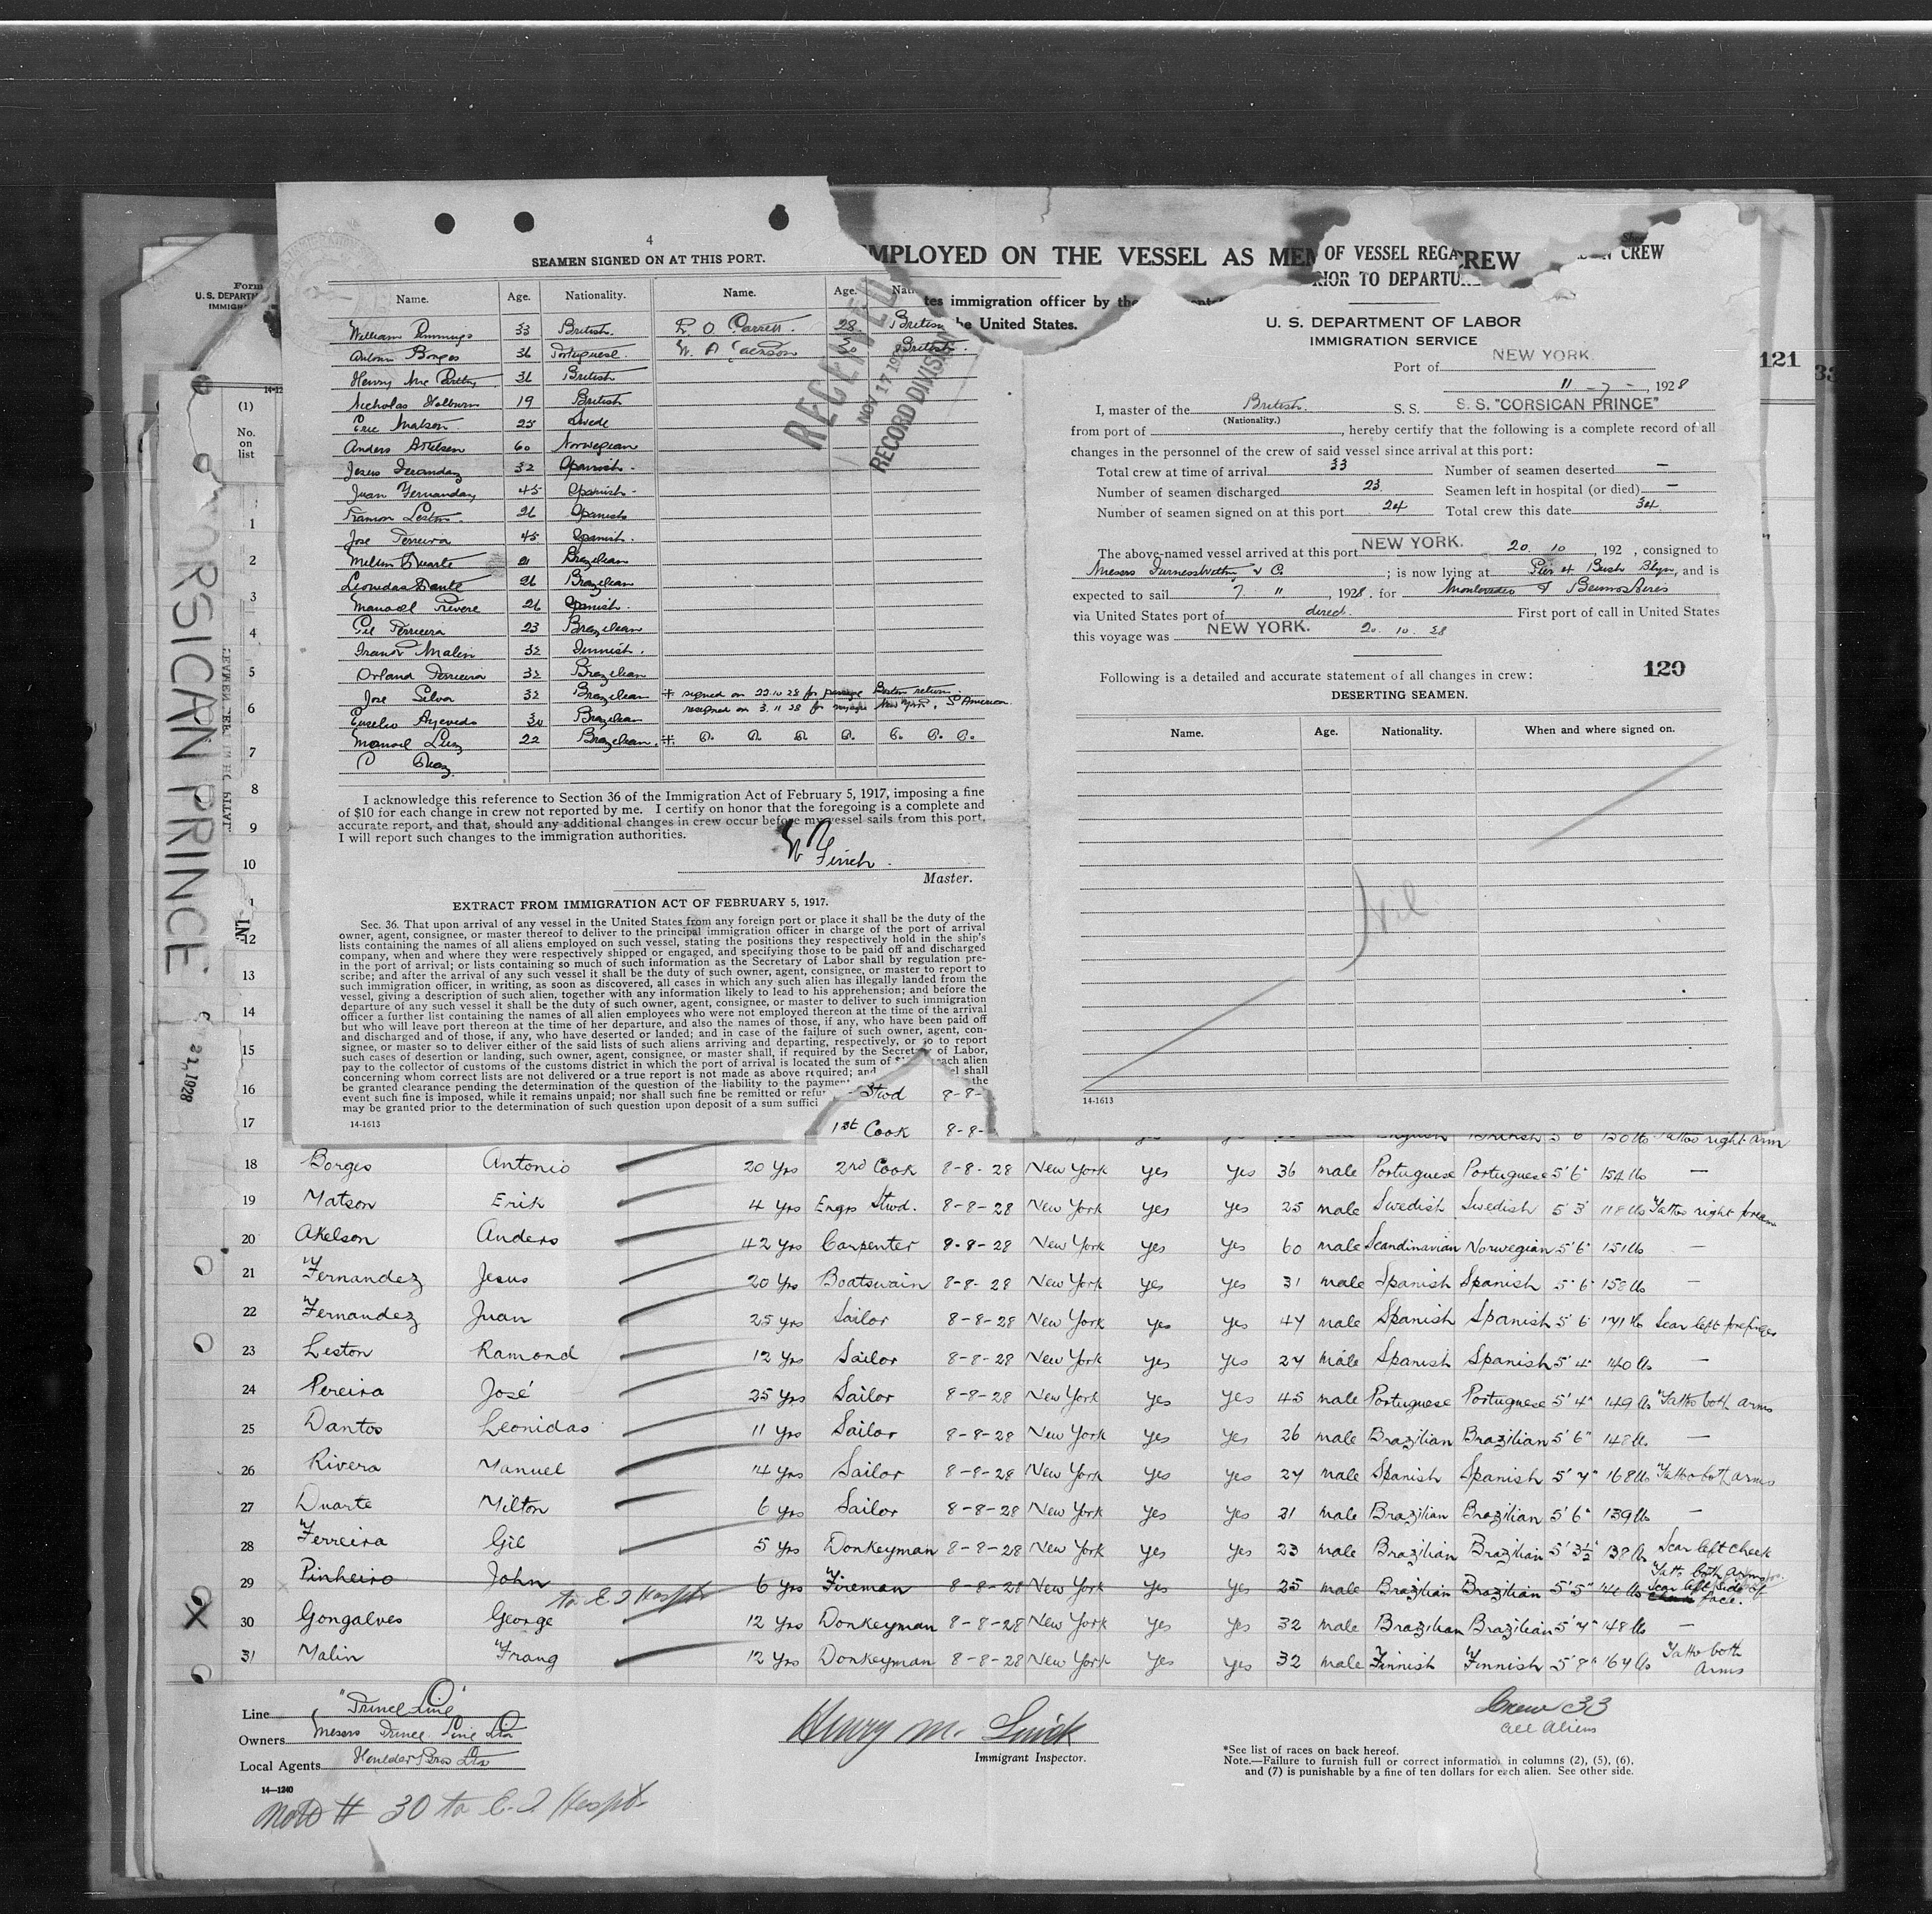 4
SEAMEN SIGNED ON AT THIS PORT.
Name. Age. Nationality. Name. Age. Nati
William 33 British. 28. British
Antonio Borges 36 Portuguese W. A. Jackson 30 British.
Henry 36 British
Nicholas 19 British
Eric Matson 25 Swede
Anders 60 Norwegian
Jesus 32 Spanish.
Juan Fernandez 45 Spanish.
Ramon Leston. 26 Spanish
Jose Perreira 45 Spanish.
Milton Duarte 21 Brazilian
Leonidas Dante 26 Brazilean
Manoel 26 Spanish.
Gil Ferriera 23 Brazilean
Malin 32 Finnish.
Orland Ferriera 32 Brazilean
Jose Silva 32 Brazilean signed on 22.10.28 for passage Boston return
30 Brazilean resigned on 3.11.28 for voyage New York, So American
Manoel Luz 22 Brazilean.
RECEIVED
NOV 17 192
RECORD DIVISION
I acknowledge this reference to Section 36 of the Immigration Act of February 5, 1917, imposing a fine
of $10 for each change in crew not reported by me. I certify on honor that the foregoing is a complete and
accurate report, and that, should any additional changes in crew occur before my vessel sails from this port,
I will report such changes to the immigration authorities.
W Finch.
Master.
EXTRACT FROM IMMIGRATION ACT OF FEBRUARY 5, 1917.
Sec. 36. That upon arrival of any vessel in the United States from any foreign port or place it shall be the duty of the
owner, agent, consignee, or master thereof to deliver to the principal immigration officer in charge of the port of arrival
lists containing the names of all aliens employed on such vessel, stating the positions they respectively hold in the ship's
company, when and where they were respectively shipped or engaged, and specifying those to be paid off and discharged
in the port of arrival; or lists containing so much of such information as the Secretary of Labor shall by regulation pre-
scribe; and after the arrival of any such vessel it shall be the duty of such owner, agent, consignee, or master to report to
such immigration officer, in writing, as soon as discovered, all cases in which any such alien has illegally landed from the
vessel, giving a description of such alien, together with any information likely to lead to his apprehension; and before the
departure of any such vessel it shall be the duty of such owner, agent, consignee, or master to deliver to such immigration
officer a further list containing the names of all alien employees who were not employed thereon at the time of the arrival
but who will leave port thereon at the time of her departure, and also the names of those, if any, who have been paid off
and discharged and of those, if any, who have deserted or landed; and in case of the failure of such owner, agent, con-
signee, or master so to deliver either of the said lists of such aliens arriving and departing, respectively, or so to report
such cases of desertion or landing, such owner, agent, consignee, or master shall, if required by the Secretary of Labor,
pay to the collector of customs of the customs district in which the port of arrival is located the sum of $ each alien
concerning whom correct lists are not delivered or a true report is not made as above required; and el shall
be granted clearance pending the determination of the question of the liability to the payment the
event such fine is imposed, while it remains unpaid; nor shall such fine be remitted or refun
may be granted prior to the determination of such question upon deposit of a sum suffici
14-1613
MPLOYED ON THE VESSEL AS MEM
CREW
tes immigration officer by the
he United States.
OF VESSEL REGA
CREW
RIOR TO DEPARTU
U. S. DEPARTMENT OF LABOR
IMMIGRATION SERVICE
Port of NEW YORK.
11 - 7 -, 1928
I, master of the British. S. S. S. S. "CORSICAN PRINCE"
(Nationality.)
from port of , hereby certify that the following is a complete record of all
changes in the personnel of the crew of said vessel since arrival at this port:
Total crew at time of arrival 33 Number of seamen deserted —
Number of seamen discharged 23 Seamen left in hospital (or died) —
Number of seamen signed on at this port 24 Total crew this date 34
The above-named vessel arrived at this port NEW YORK. 20 10, 192 , consigned to
Messrs Furness Withy & C. ; is now lying at Pier 4 Bush Blyn, and is
expected to sail 7 11, 1928. for Montevideo & Buenos Aires
via United States port of direct. First port of call in United States
this voyage was NEW YORK. 20. 10. 28
120
Following is a detailed and accurate statement of all changes in crew:
DESERTING SEAMEN.
Name. Age. Nationality. When and where signed on.
Nil
14-1613
121
Form
U. S. DEPARTM
IMMIGRA
14-12
(1)
No.
on
list
1
2
3
4
5
6
7
8
9
10
12
13
14
15
16 Stwd 8-8-
17 1st Cook 8-8- English British 5 6 150 lbs Tattoo right arm
CORSICAN PRINCE
1928
18 Borges Antonio 20 yrs 2nd Cook 8-8-28 New York yes yes 36 male Portuguese Portuguese 5'6" 154 lbs —
19 Matson Erik 4 yrs Engrs Stwd. 8-8-28 New York yes yes 25 male Swedish Swedish 5'3" 118 lbs Tattoo right forearm
20 Akelson Anders 42 yrs Carpenter 8-8-28 New York yes yes 60 male Scandinavian Norwegian 5'6" 151 lbs —
21 Fernandez Jesus 20 yrs Boatswain 8-8-28 New York yes yes 31 male Spanish Spanish 5'6" 158 lbs —
22 Fernandez Juan 25 yrs Sailor 8-8-28 New York yes yes 47 male Spanish Spanish 5'6" 171 lbs Scar left forefinger
23 Leston Ramond 12 yrs Sailor 8-8-28 New York yes yes 27 male Spanish Spanish 5'4" 140 lbs —
24 Pereira José 25 yrs Sailor 8-8-28 New York yes yes 45 male Portuguese Portuguese 5'4" 149 lbs Tattoo both arms
25 Dantos Leonidas 11 yrs Sailor 8-8-28 New York yes yes 26 male Brazilian Brazilian 5'6" 148 lbs —
26 Rivera Manuel 14 yrs Sailor 8-8-28 New York yes yes 27 male Spanish Spanish 5'7" 168 lbs Tattoo both arms
27 Duarte Milton 6 yrs Sailor 8-8-28 New York yes yes 21 male Brazilian Brazilian 5'6" 139 lbs —
28 Ferreira Gil 5 yrs Donkeyman 8-8-28 New York yes yes 23 male Brazilian Brazilian 5'3½" 138 lbs Scar left cheek
29 Pinheiro John 6 yrs Fireman 8-8-28 New York yes yes 25 male Brazilian Brazilian 5'5" 141 lbs Tatto both arms Scar left side of face.
to E. I Hospt
30 Gongalves George 12 yrs Donkeyman 8-8-28 New York yes yes 32 male Brazilian Brazilian 5'7" 148 lbs —
31 Malin Frang 12 yrs Donkeyman 8-8-28 New York yes yes 32 male Finnish Finnish 5'8" 167 lbs Tatto both arms
Line "Prince Line"
Owners Messrs Prince Line Ltd
Local Agents Houlder Bros Ltd
14—1240
Henry M.
Immigrant Inspector.
Crew 33
all Aliens
*See list of races on back hereof.
Note.—Failure to furnish full or correct information in columns (2), (5), (6),
and (7) is punishable by a fine of ten dollars for each alien. See other side.
Note # 30 to E. I Hospt.